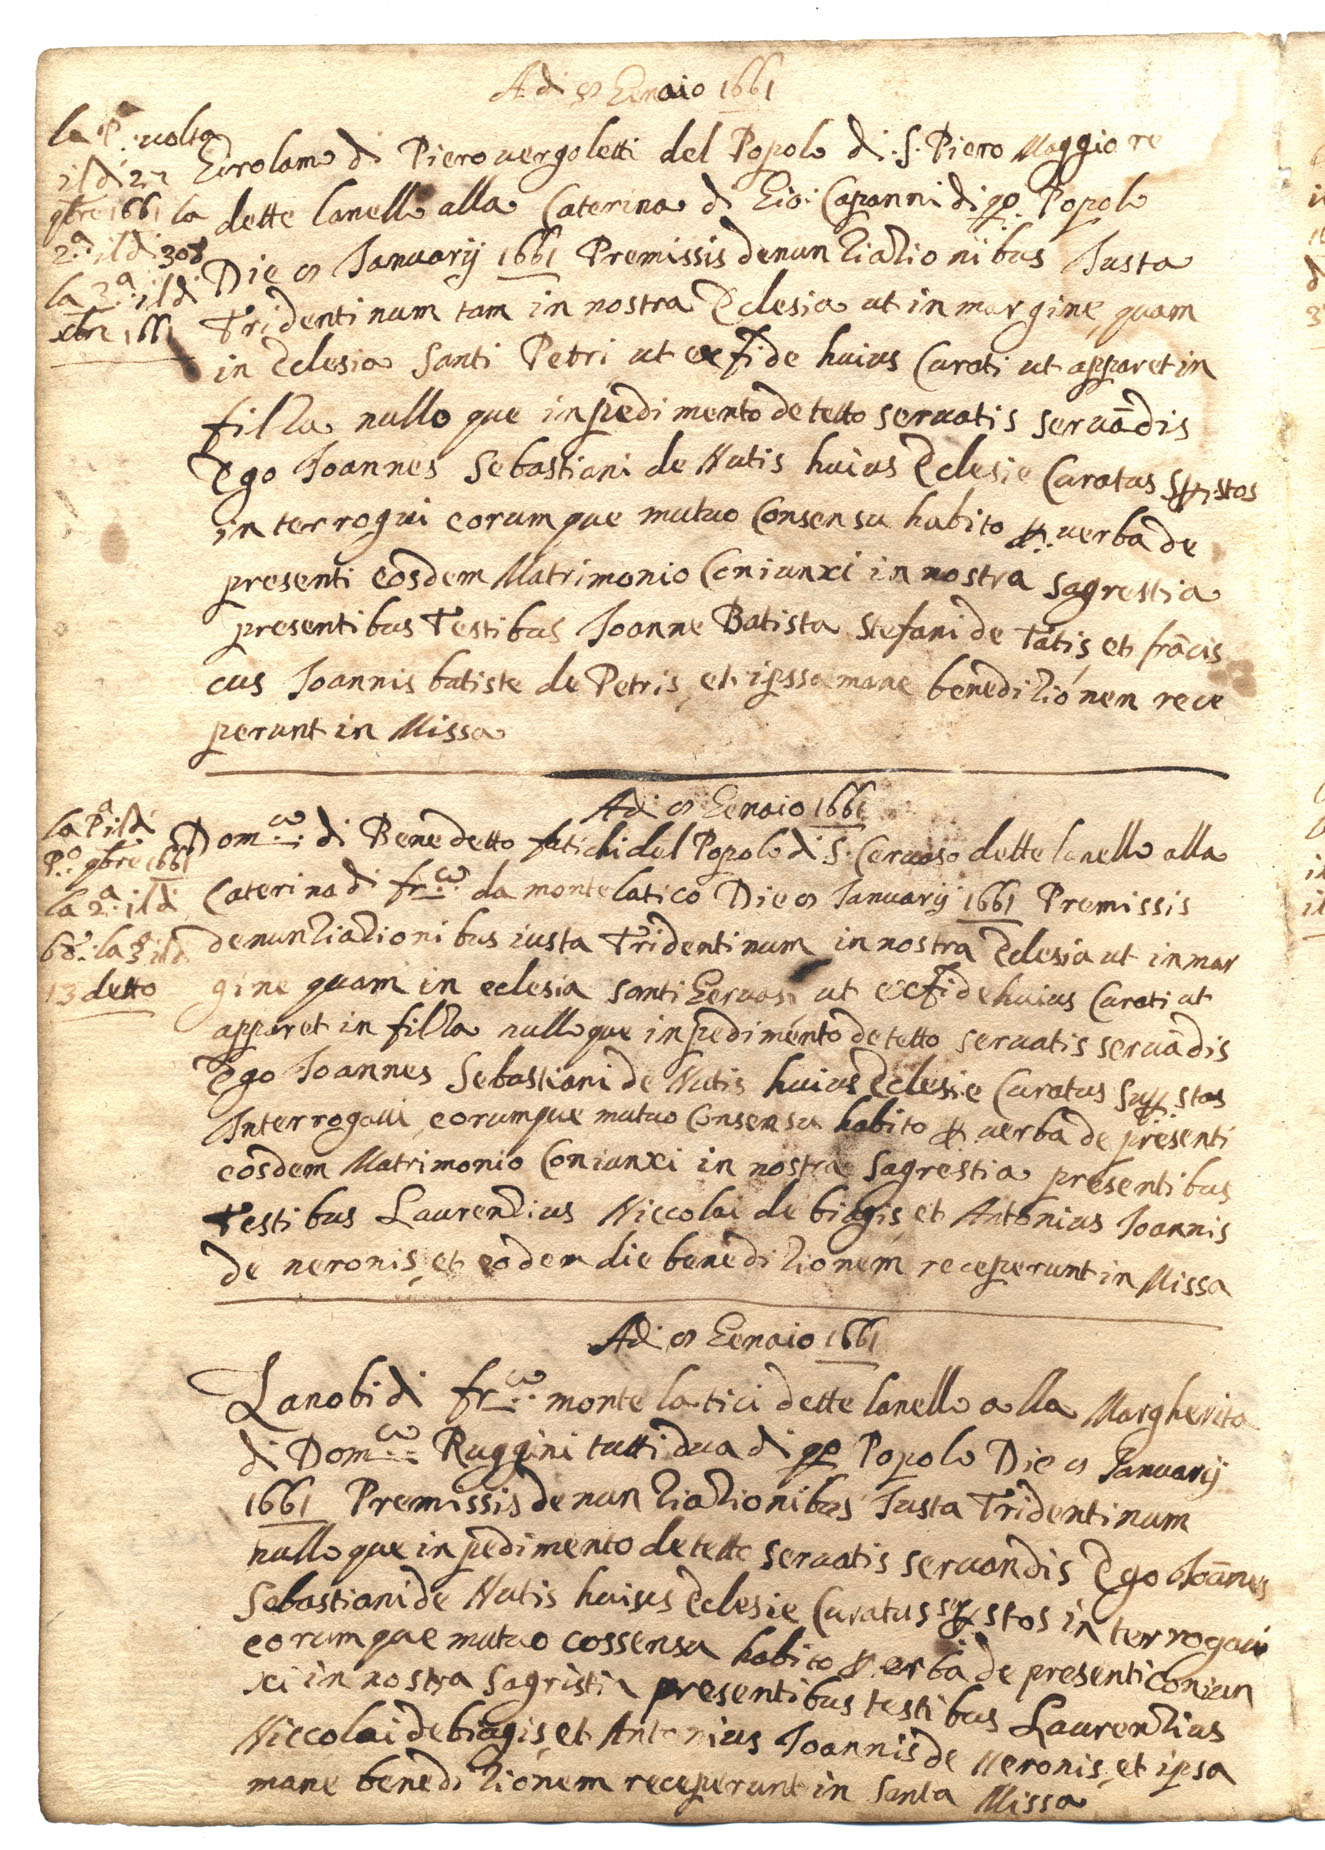 Adi 9 Genaio 1661
la P.ª volta
il di 27
9bre 1661 la
2.ª il di 30 d
la 3.ª il di
xbre 1661
Girolamo di Piero vergoletti del Popolo di S. Piero Maggiore
dette lanello alla Caterina di Gio: Capanni di qo. Popolo
Die 9 Januarij 1661 Premissis denuntiationibus Iusta
Tridentinum tam in nostra Eclesia ut in margine, quam
in Eclesia Santi Petri ut ex fide huius Curati ut apparet in
filza nulloque inpedimento detetto servatis servādis
Ego Joannes Sebastiani de Nutis huius Eclesie Curatus
interrogui eorumque mutuo Consensu habito p. verba de
presenti eosdem Matrimonio Coniunxi in nostra Sagrestia
presentibus Testibus Joanne Batista Stefani de Tatis, et frācis
cus Joannis batiste de Petris, et ipssa mane beneditionem rece
perunt in Missa
Adi 9 Genaio 1661
la Pª il di
P.º 9bre 1661
la 2.ª il di
6 d. la 3ª il d.
13 detto
Dom.co di Benedetto fatichi del Popolo di S. Cervaso dette lanello alla
Caterina di fr.co da montelatico Die 9 Januarij 1661 Premissis
denuntiationibus iusta Tridentinum in nostra Eclesia ut in mar
gine quam in eclesia Santi Gervasi ut ex fide huius Curati ut
apparet in filza nulloque inpedimento detetto servatis servādis
Ego Joannes Sebastiani de Nutis huius Eclesie Curatus
Interrogavi eorumque mutuo Consensu habito p. verba de presenti
eosdem Matrimonio Coniunxi in nostra Sagrestia presentibus
Testibus Laurentius Niccolai de biagis, et Antonius Joannis
de neronis, et eodem die beneditionem receperunt in Missa
Adi 9 Genaio 1661
Zanobi di fr.co montelatici dette lanello alla Margherita
di Dom.co Ruggini tutti dua di qo Popolo Die 9 Januarij
1661 Premissis denuntiationibus Iusta Tridentinum
nulloque inpedimento detetto servatis servandis Ego Joānnes
Sebastiani de Nutis huisus Eclesie Curatus interrogavi
eorumque mutuo cossensu habito p. verba de presenti coniun
xi in nostra Sagristia presentibus testibus Laurentius
Niccolai de biagis, et Antonius Joannis de Neronis, et ipsa
mane beneditionem receperunt in Santa Missa